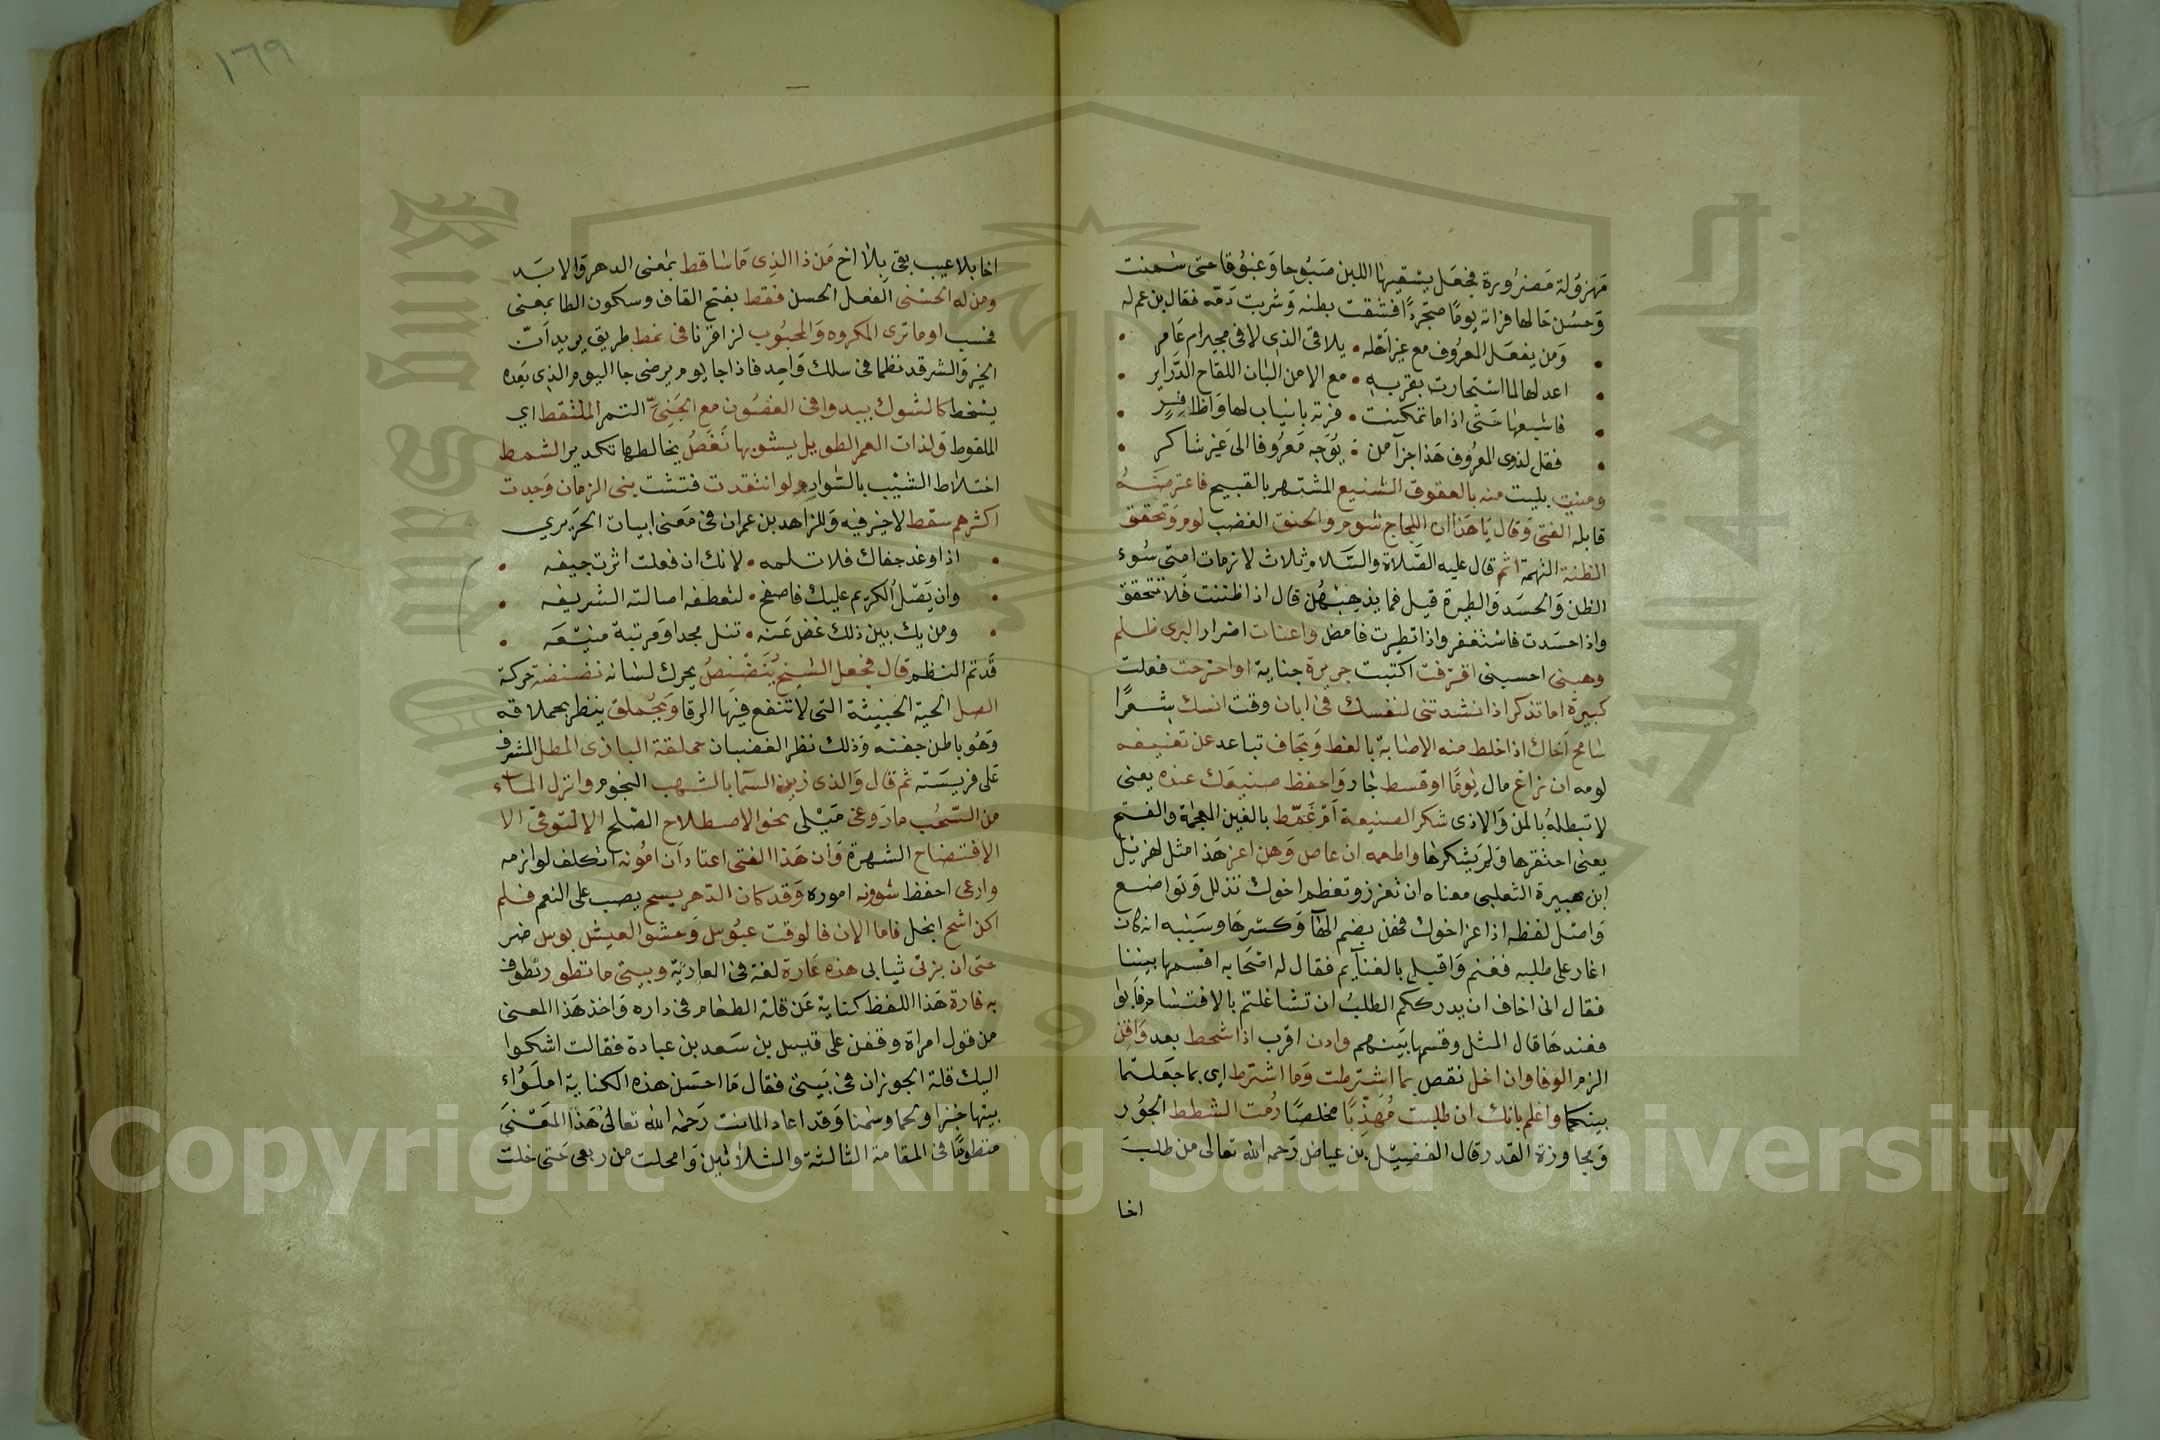 مهزولة مضرورة فجعل يسقيها اللبن صبوحا وغبوقا حتى سمنت
وحسن حالها فراته يوما متجردا فشقت بطنه وشربت دمه فقال بن عم له
ومن يفعل المعروف مع غير اهله • يلاقى الذى لاقى مجير ام عامر
اعد لها لما استجارت بقربه • مع الامن البان اللقاح الدراير
فاشبعها حتى اذا ما تمكنت • فرته بانياب لها واظافر
فقل لذوى المعروف هذا جزآ من • يوجه معروفا الى غير شاكر
ومنيت بليت منه بالعقوق الشنيع المشتهر بالقبيح فاعترضه
قابله الفتى وقال يا هذا ان اللجاج شوم والحنق الغضب لوم وتحقق
الظنة التهمة اثم قال عليه الصلاة والسلام ثلاث لازمات امتى سوء
الظن والحسد والطيرة قيل فما يذهبهن قال اذا ظننت فلا تتحقق
واذا حسدت فاستغفر واذا تطيرت فامض واعنات اضرار البرى ظلم
وهبنى احسبنى اقترفت اكتبت جريرة جناية او اجترحت فعلت
كبيرة اما تذكر اذ انشدتنى لنفسك فى ابان وقت انسك شعرا
سامح اخاك اذا خلط منه الاصابة بالغلط وتجاف تباعد عن تعنيفه
لومه ان زاغ مال يوما او قسط جار واحفظ صنيعك عنده يعنى
لا تبطله بالمن والاذى شكر الصنيعة ام غمط بالغين المعجمة والفتح
يعنى احتقرها ولم يشكرها واطعه ان عاصى وهن اعز هذا مثل لهزيل
ابن هبيرة الثعلبى معناه ان تعزز وتعظم اخوك تذلل وتواضع
واصل لفظه اذا عز اخوك فهن بضم الهآ وكسرها وسببه انه كان
اغار على طلبه فغنم واقبل بالغنايم فقال له اصحابه اقسمها بيننا
فقال انى اخاف ان يدرككم الطلب ان تشاغلتم بالاقتسام فابوا
فعندها قال المثل وقسمها بينهم وادن اقرب اذا شحط بعد واقن
الزم الوفا وان اخل نقص بما اشترطت وما اشترط اى بما جعلتما
بينكما واعلم بانك ان طلبت مهذبا مخلصا رمت الشطط الجور
ومجاوزة القدر قال الفضيل بن عياض رحمه الله تعالى من طلب
اخا
١٦٩
اخا بلا عيب بقى بلا اخ من ذا الذى ما سا قط بمعنى الدهر والابد
ومن له الحسنى الفعل الحسن فقط بفتح القاف وسكون الطا بمعنى
فحسب او ما ترى المكروه والمحبوب لزا قرنا فى نمط طريق يريد ان
الخير والشر قد نظما فى سلك واحد فاذا جا يوم يرضى جا اليوم الذى بعده
يسخط كالشوك يبدو فى الغصون مع الجنى التمر الملتقط اى
الملقوط ولذات العمر الطويل يشوبها نغص يخالطها تكدير الشمط
اختلاط الشيب بالسواد ولو انتقدت فتشت بنى الزمان وجدت
اكثرهم سقط لا خير فيه وللزاهد بن عمران فى معنى ابيات الحريري
اذا وغد جفاك فلا تلمه • لانك ان فعلت اثرت جيفه
وان يصل الكريم عليك فاصفح • لتعطفه اصالته الشريفه
ومن يك بين ذلك غض عنه • تنل مجدا ومرتبة منيعه
قد تم النظم قال فجعل الشيخ ينضنض يحرك لسانه نضنضة حركة
الصل الحية الخبيثة التى لا تنفع فيها الرقا ويحملق ينظر بحملاقه
وهو باطن جفنه وذلك نظر الغضبان حملقة البازى المطل المشرف
على فريسته ثم قال والذى زين السما بالشهب النجوم وانزل الماء
من السحب ما روغى ميلى نحو الاصطلاح الصلح الا لتوقى الا
الافتضاح الشهرة وان هذا الفتى اعتاد ان امونه اتكلف لوازمه
وارعى احفظ شوونه اموره وقد كان الدهر يسح يصب على النعم فلم
اكن اشح ابخل فاما الان فالوقت عبوس وحشو العيش بوس ضر
حتى ان بزتى ثيابى هذه عارة لغة فى العارية وبيتى ما تطور تطوف
به فارة هذا اللفظ كناية عن قلة الطعام فى داره واخذ هذا المعنى
من قول امراة وقفت على قيس بن سعد بن عبادة فقالت اشكوا
اليك قلة الجرذان فى بيتى فقال ما احسن هذه الكناية املؤاء
بيتها خبزا ولحما وسمنا وقد اعاد الماتن رحمه الله تعالى هذا المعنى
منظوما فى المقامة الثالثة والثلاثين وامحلت من ربعى حتى خلت
Copyright © King Saud University
King Saud University
جامعة الملك سعود